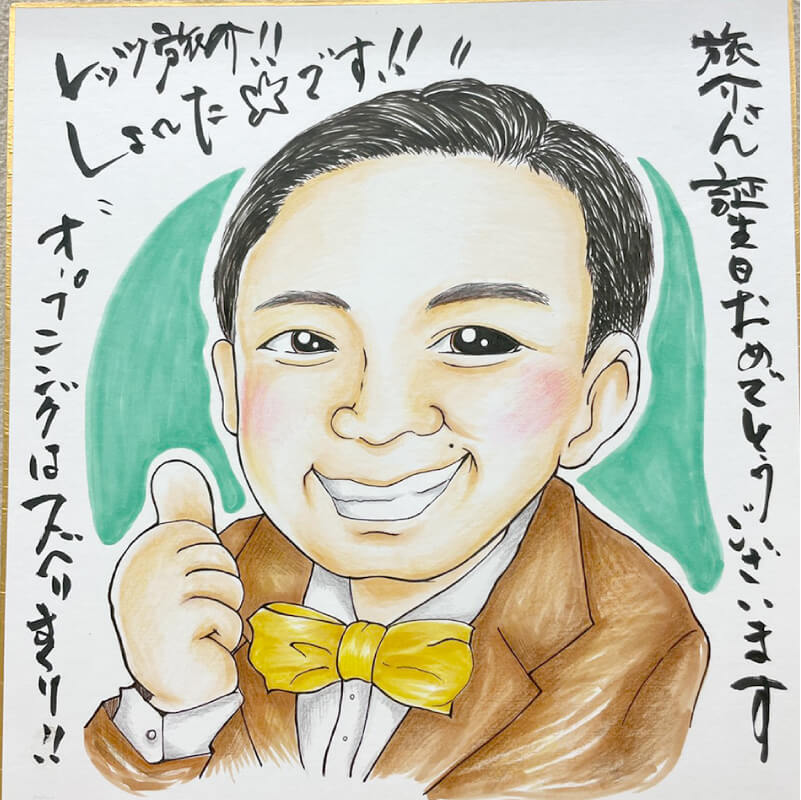 旅介さん誕生日おめでとうございます
レッツ旅介!!
しょ〜た☆です!!
オープニングはスベリまくり!!